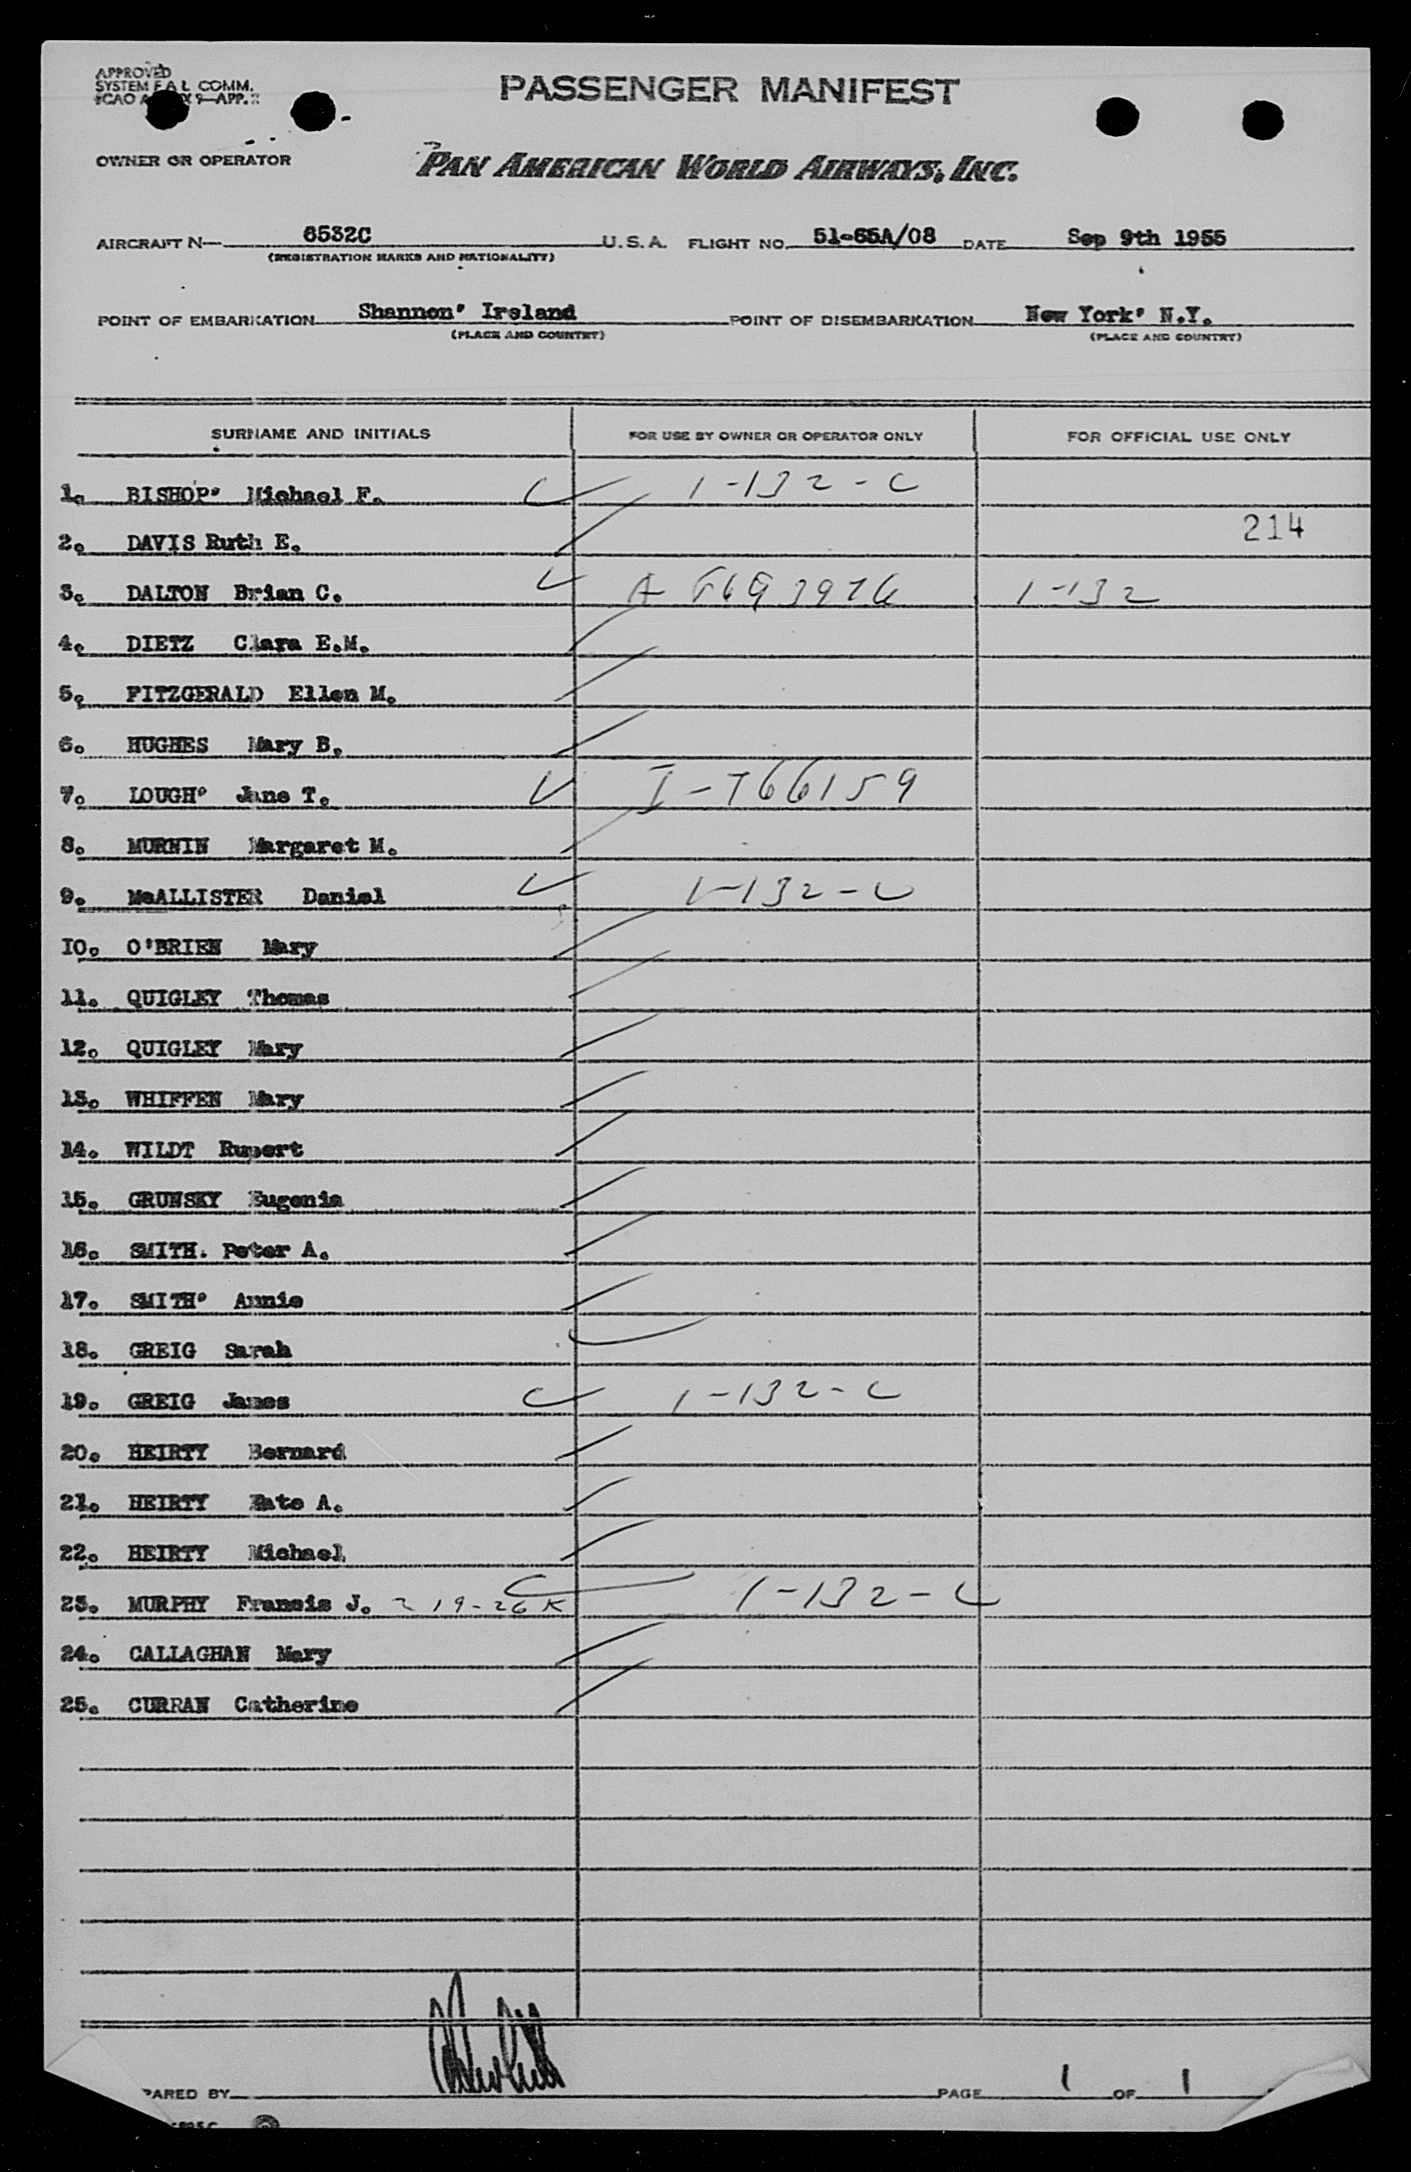 APPROVED
SYSTEM F A L COMM.
ICAO 9—APP. 2
PASSENGER MANIFEST
OWNER OR OPERATOR
PAN AMERICAN WORLD AIRWAYS, INC.
AIRCRAFT N— 6532C U.S.A. FLIGHT NO. 51-65A/08 DATE Sep 9th 1955
(REGISTRATION MARKS AND NATIONALITY)
POINT OF EMBARKATION Shannon' Ireland POINT OF DISEMBARKATION New York' N.Y.
(PLACE AND COUNTRY) (PLACE AND COUNTRY)
SURNAME AND INITIALS FOR USE BY OWNER OR OPERATOR ONLY FOR OFFICIAL USE ONLY
1. BISHOP' Michael F. 1-132-C
214
2. DAVIS Ruth E.
3. DALTON Brian C. A 6693976 1-132
4. DIETZ Clara E.M.
5. FITZGERALD Ellen M.
6. HUGHES Mary B.
7. LOUGH' Jane T. I-766159
8. MURNIN Margaret M.
9. McALLISTER Daniel 1-132-C
10. O'BRIEN Mary
11. QUIGLEY Thomas
12. QUIGLEY Mary
13. WHIFFEN Mary
14. WILDT Rupert
15. GRUNSKY Eugenia
16. SMITH. Peter A.
17. SMITH' Annie
18. GREIG Sarah
19. GREIG James 1-132-C
20. HEIRTY Bernard
21. HEIRTY Kate A.
22. HEIRTY Michael
23. MURPHY Francis J. 219-26K 1-132-C
24. CALLAGHAN Mary
25. CURRAN Catherine
PARED BY PAGE 1 OF 1